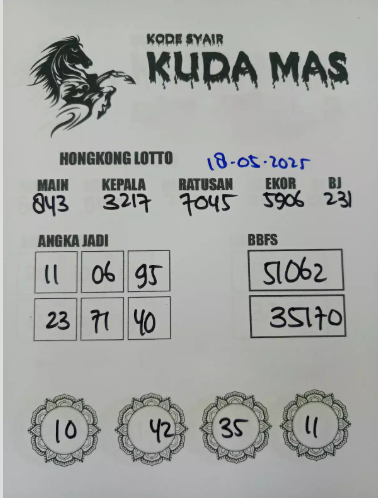 KODE SYAIR
KUDA MAS
HONGKONG LOTTO 18-05-2025
MAIN KEPALA RATUSAN EKOR BJ
843 3217 7045 5906 231
ANGKA JADI BBFS
11 06 95 51062
23 71 40 35170
10 42 35 11